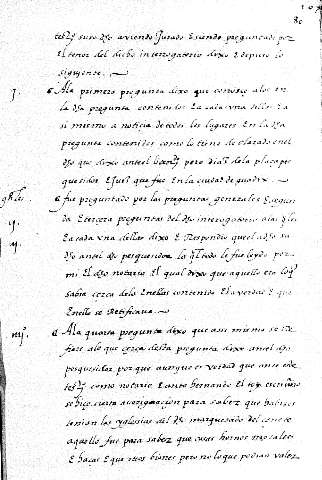 80
testigo suso dho aviendo Jurado e siendo preguntado por
El tenor del dicho interrogatorio dixo e depuso lo
siguiente
j A la primera pregunta dixo que conosce a los en
la dha pregunta contenidos E a cada vno dellos E a
si mismo a noticia de todos los lugares En la dha
pregunta contenidos como lo tiene declarado en el
dho que dixo ante el pero diaz de la plaça pes
quesidor E Juez que fue En la cibdad de guadix
gles fue preguntado por las preguntas generales E segun
ij da E tercera preguntas del dho interrogatorio a las quales
E a cada vna dellas dixo E Respondio quel a dho su
iij dho ante el dho pesquesidor lo qual todo le fue leydo por
mi El dho notario El qual dixo que aquello era lo que
sabia cerca de lo En ellas contenido E la verdad E que
En ello se Retificava
iiij A la quarta pregunta dixo que asi mismo se Re
fiere a lo que cerca desta pregunta dixo ante el dho
pesquesidor por que aunque es verdad que ante este
testigo como notario E ante hernando El escrivano
se hizo cierta averiguacion para saber que habizes
tenian las yglesias del dho marquesado del cenete
aquello fue para saber que casas hornos molinos
E hazas E que mas bienes pero no lo que podian valer